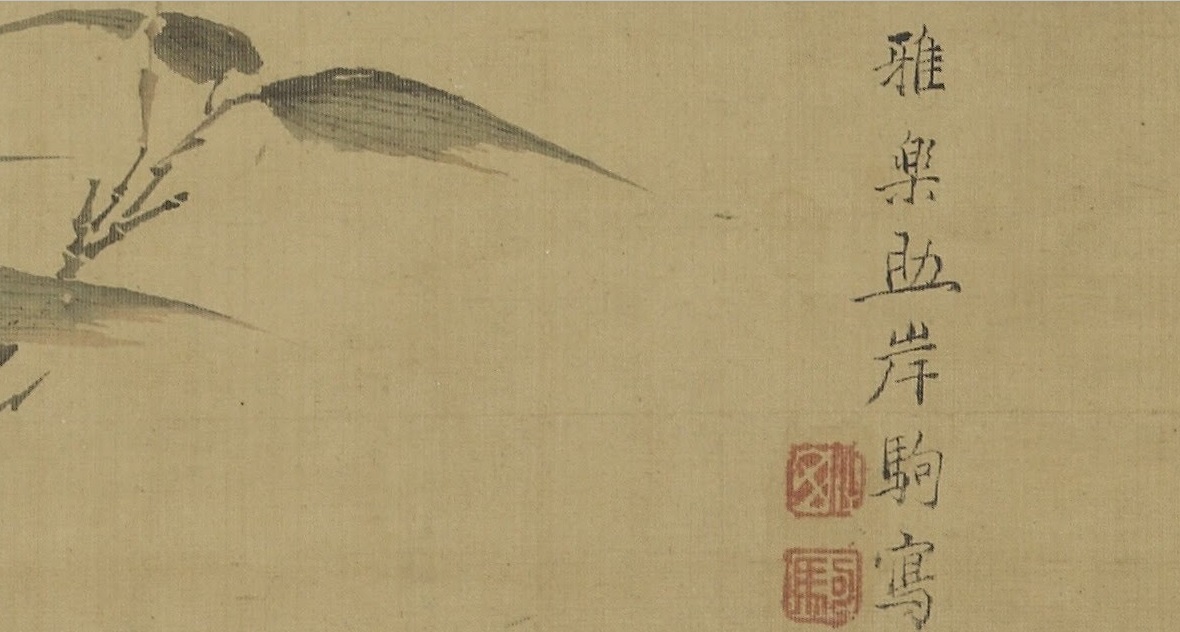 雅楽助岸駒寫
駒